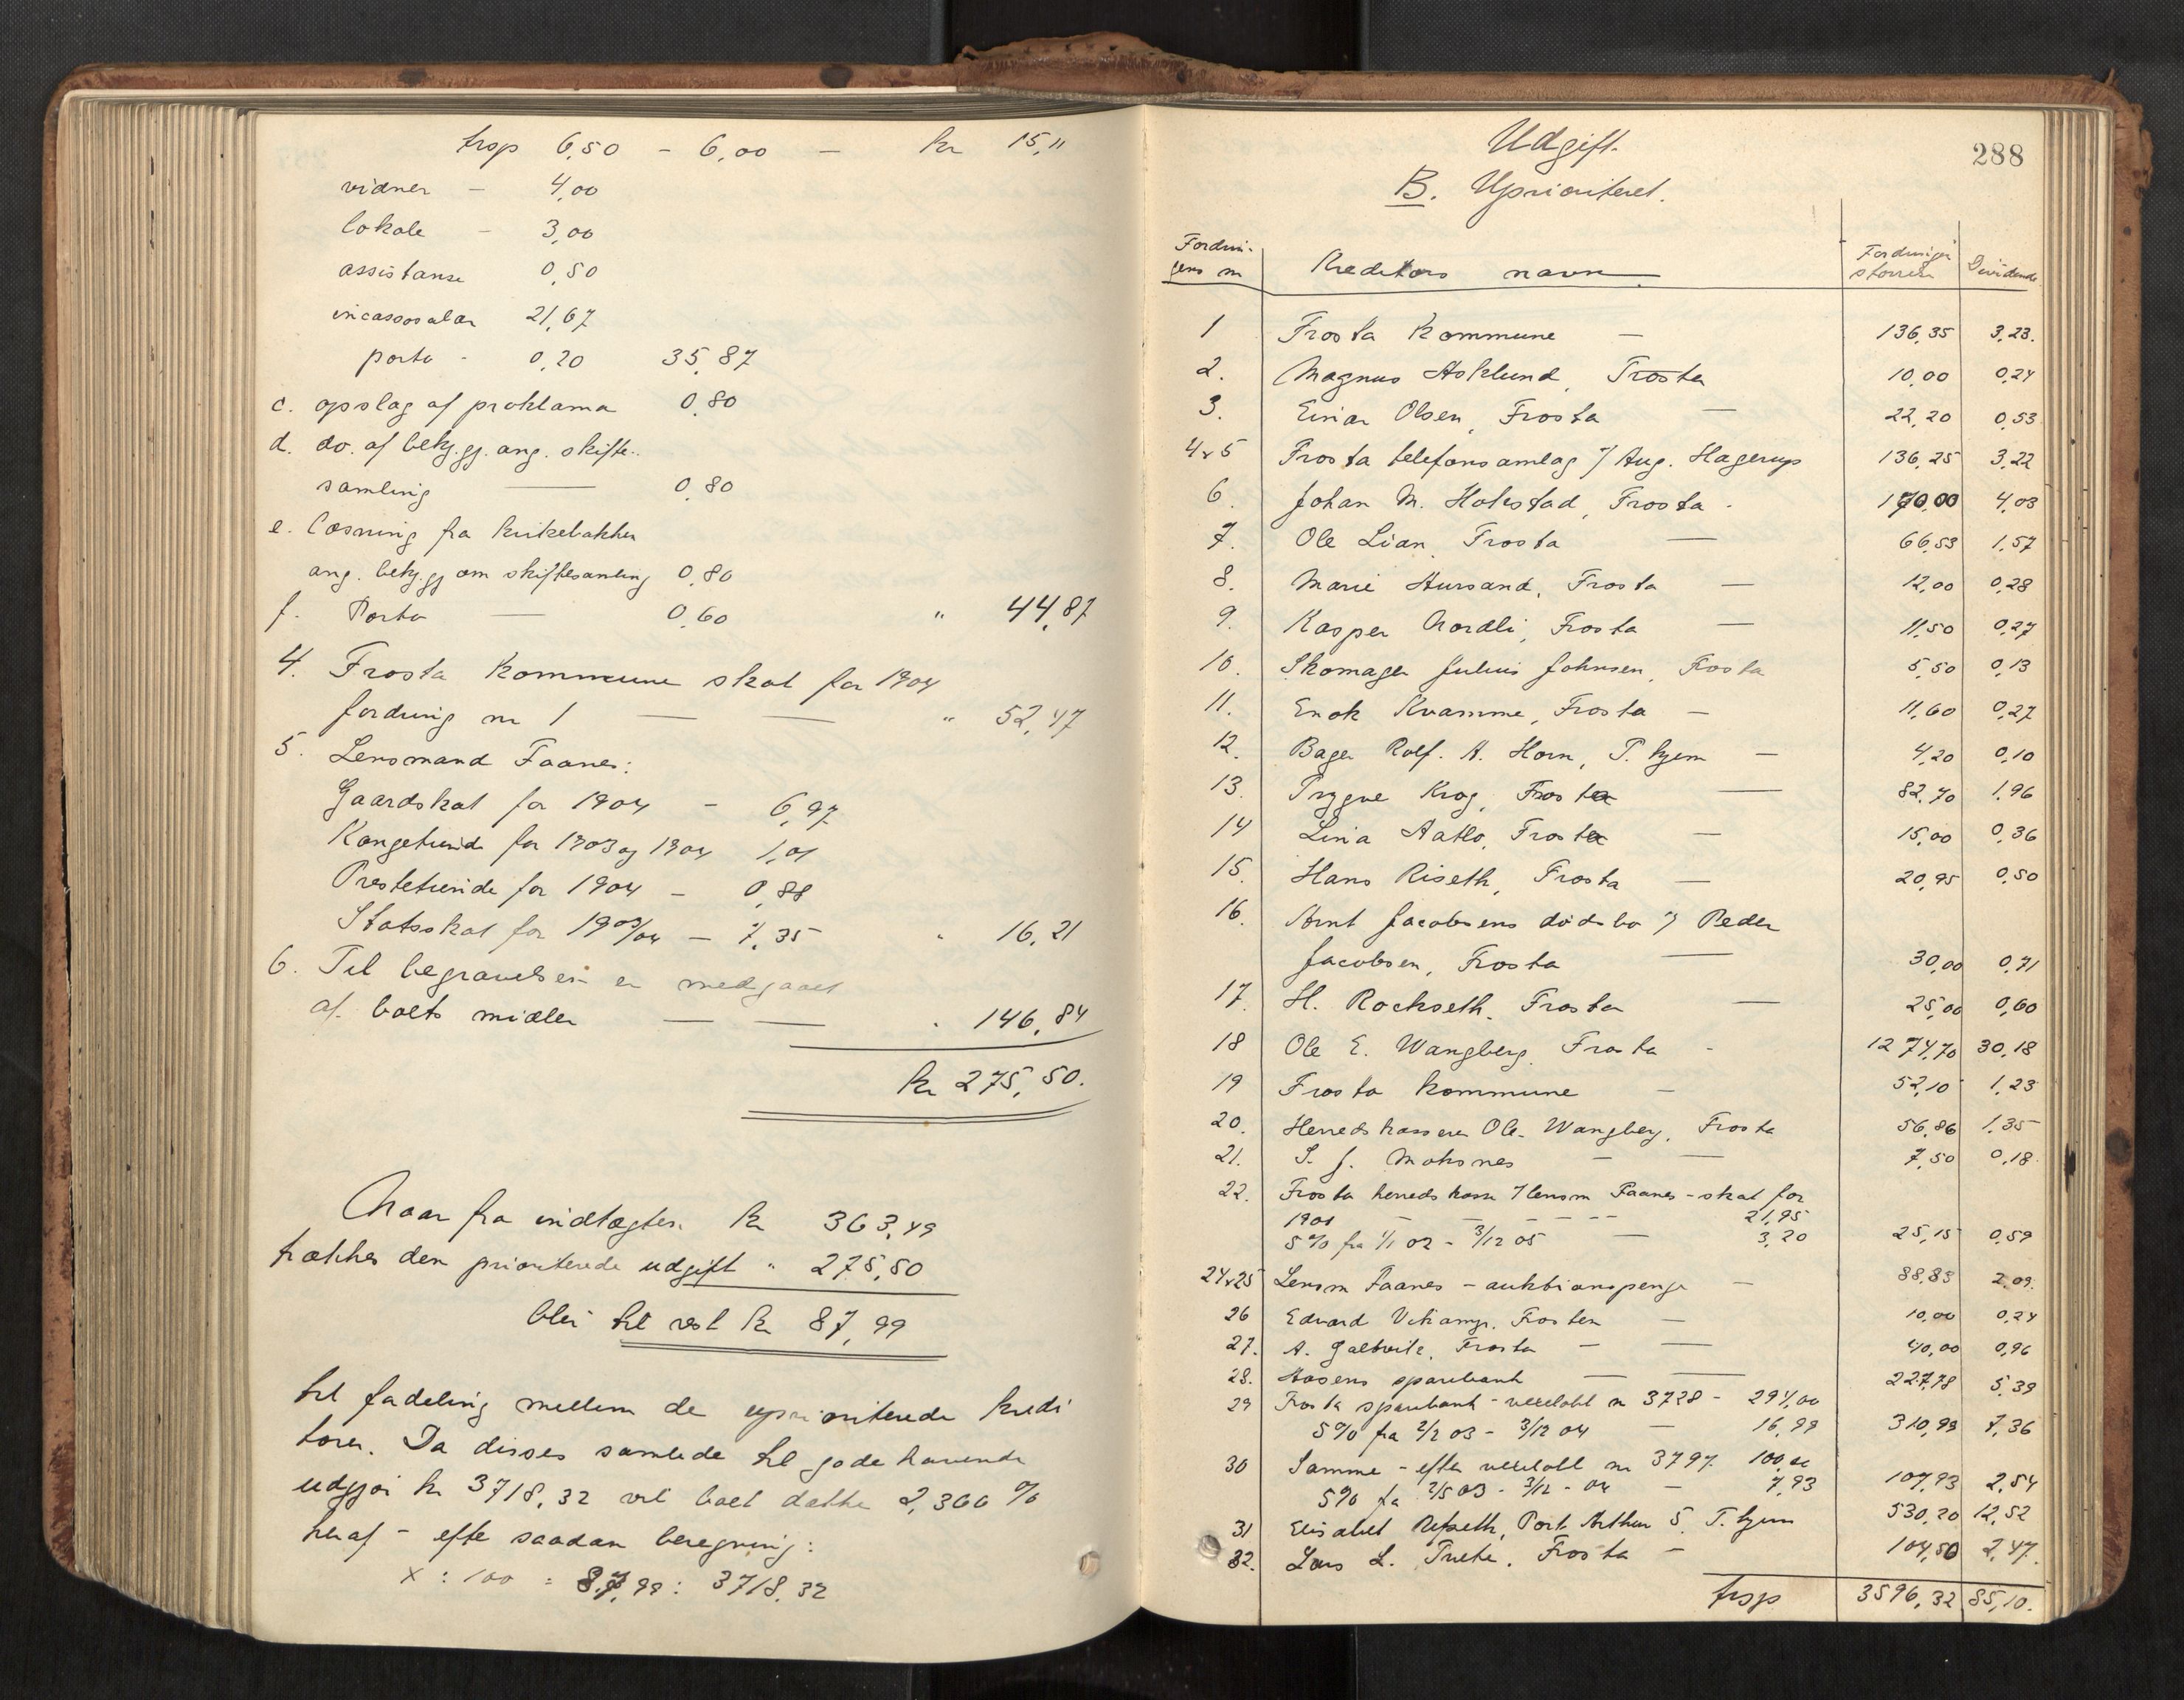 trsp 6,50 - 6,00 - kr 15,11
vidner - 4,00
lokale - 3,00
assistanse 0,50
incassosalær 21,67
porto - 0,20 35,87
c. opslag af proklama 0,80
d. do. af bekj.gj. ang. skifte-
samling — 0,80
e. læsning fra kirkebakken
ang. bekj.gj om skiftesamling 0,80
f. Porto — 0,60 " 44,87
4. Frosta kommune skat for 1904
fordring nr 1 — — " 52,47
5. Lensmand Faanes:
Gaardskat for 1904 - 6,97
Kongetiende for 1903 og 1904 1,01
Prestetiende for 1904 - 0,88
Statsskat for 1903/04 - 7,35 " 16,21
6. Til begravelsen er medgaaet
af boets midler — — " 146,84
kr 275,50.
Naar fra indtægten kr 363,49
trækkes den prioriterede udgift " 275,50
blir til rest kr 87,99
til fordeling mellem de uprioriterede kredi
torer. Da disses samlede tilgodehavende
udgjør kr 3718,32 vil boet dække 2,366 %
heraf - efter saadan beregning:
x : 100 = 87,99 : 3718,32
288
Udgift.
B. Uprioriteret.
Fordrin-
gens nr Kreditors navn Fordringens størrelse Dividende
1 Frosta kommune — 136,35 3,23.
2. Magnus Asklund, Frosta 10,00 0,24
3. Einar Olsen, Frosta — 22,20 0,53
4 & 5 Frosta telefonsamlag v/ Aug. Hagerup 136,25 3,22
6. Johan M. Hokstad, Frosta - 170,00 4,03
7. Ole Lian, Frosta — 66,53 1,57
8. Marie Aursand, Frosta — 12,00 0,28
9. Kasper Nordli, Frosta — 11,50 0,27
10. Skomager Julius Johnsen, Frosta 5,50 0,13
11. Enok Kvamme, Frosta - 11,60 0,27
12. Bager Rolf. A. Horn, T.hjem — 4,20 0,10
13. Trygve Krog, Frosta — 82,70 1,96
14 Lina Aatlo, Frosta — 15,00 0,36
15. Hans Riseth, Frosta — 20,95 0,50
16. Arnt Jacobsens dødsbo v/ Peder
Jacobsen, Frosta — 30,00 0,71
17. H. Rockseth, Frosta — 25,00 0,60
18 Ole E. Wangberg, Frosta - 1274,70 30,18
19 Frosta kommune — 52,10 1,23
20. Herredskasserer Ole Wangberg, Frosta 56,86 1,35
21. S. J. Moksnes — — 7,50 0,18
22. Frosta herredskasse v/ lensm Faanes - skat for
1901 - - - - - 21,95
5 % fra 1/1 02 - 3/12 05 — 3,20 25,15 0,59
24 & 25 Lensm Faanes - auktionspenge — 88,83 2,09.
26 Edvard Vikamp. Frosten — 10,00 0,24
27. A. Galtvik, Frosta — — 40,00 0,96
28. Aasens sparebank — — 227,78 5,39
29 Frosta sparebank - vexelobl nr 3728 - 294,00
5% fra 2/2 03 - 3/12 04 — 16,99 310,99 7,36
30 Samme - efter vexelobl nr 3797 100,00
5% fra 2/5 03 - 3/12 - 04 — 7,93 107,93 2,54
31 Elisabet Port Arthur 5, T.hjem 530,20 12,52
32. Lars L. Frosta — 104,50 2,47.
trsp 3596,32 85,10.